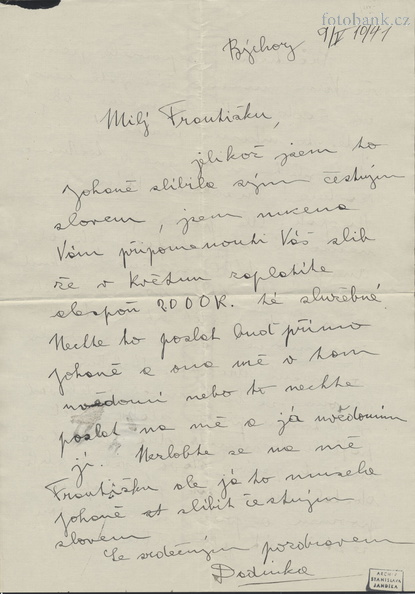 fotobank.cz
Býchory 9/V 1941
Milý Františku,
jelikož jsem to
Johaně slíbila svým čestným
slovem, jsem nucena
Vám připomenouti Váš slib
že v Květnu zaplatíte
alespoň 2000K. té služebné
Nechte to poslat buď přímo
Johaně a ona mě v tom
uvědomí nebo to nechte
poslat na mě a já uvědomím
jí. Nezlobte se na mě
Františku ale já to musela
Johaně slíbit čestným
slovem
Se srdečným pozdravem
Dodinka
ARCHIV
STANISLAVA
JANDÍKA